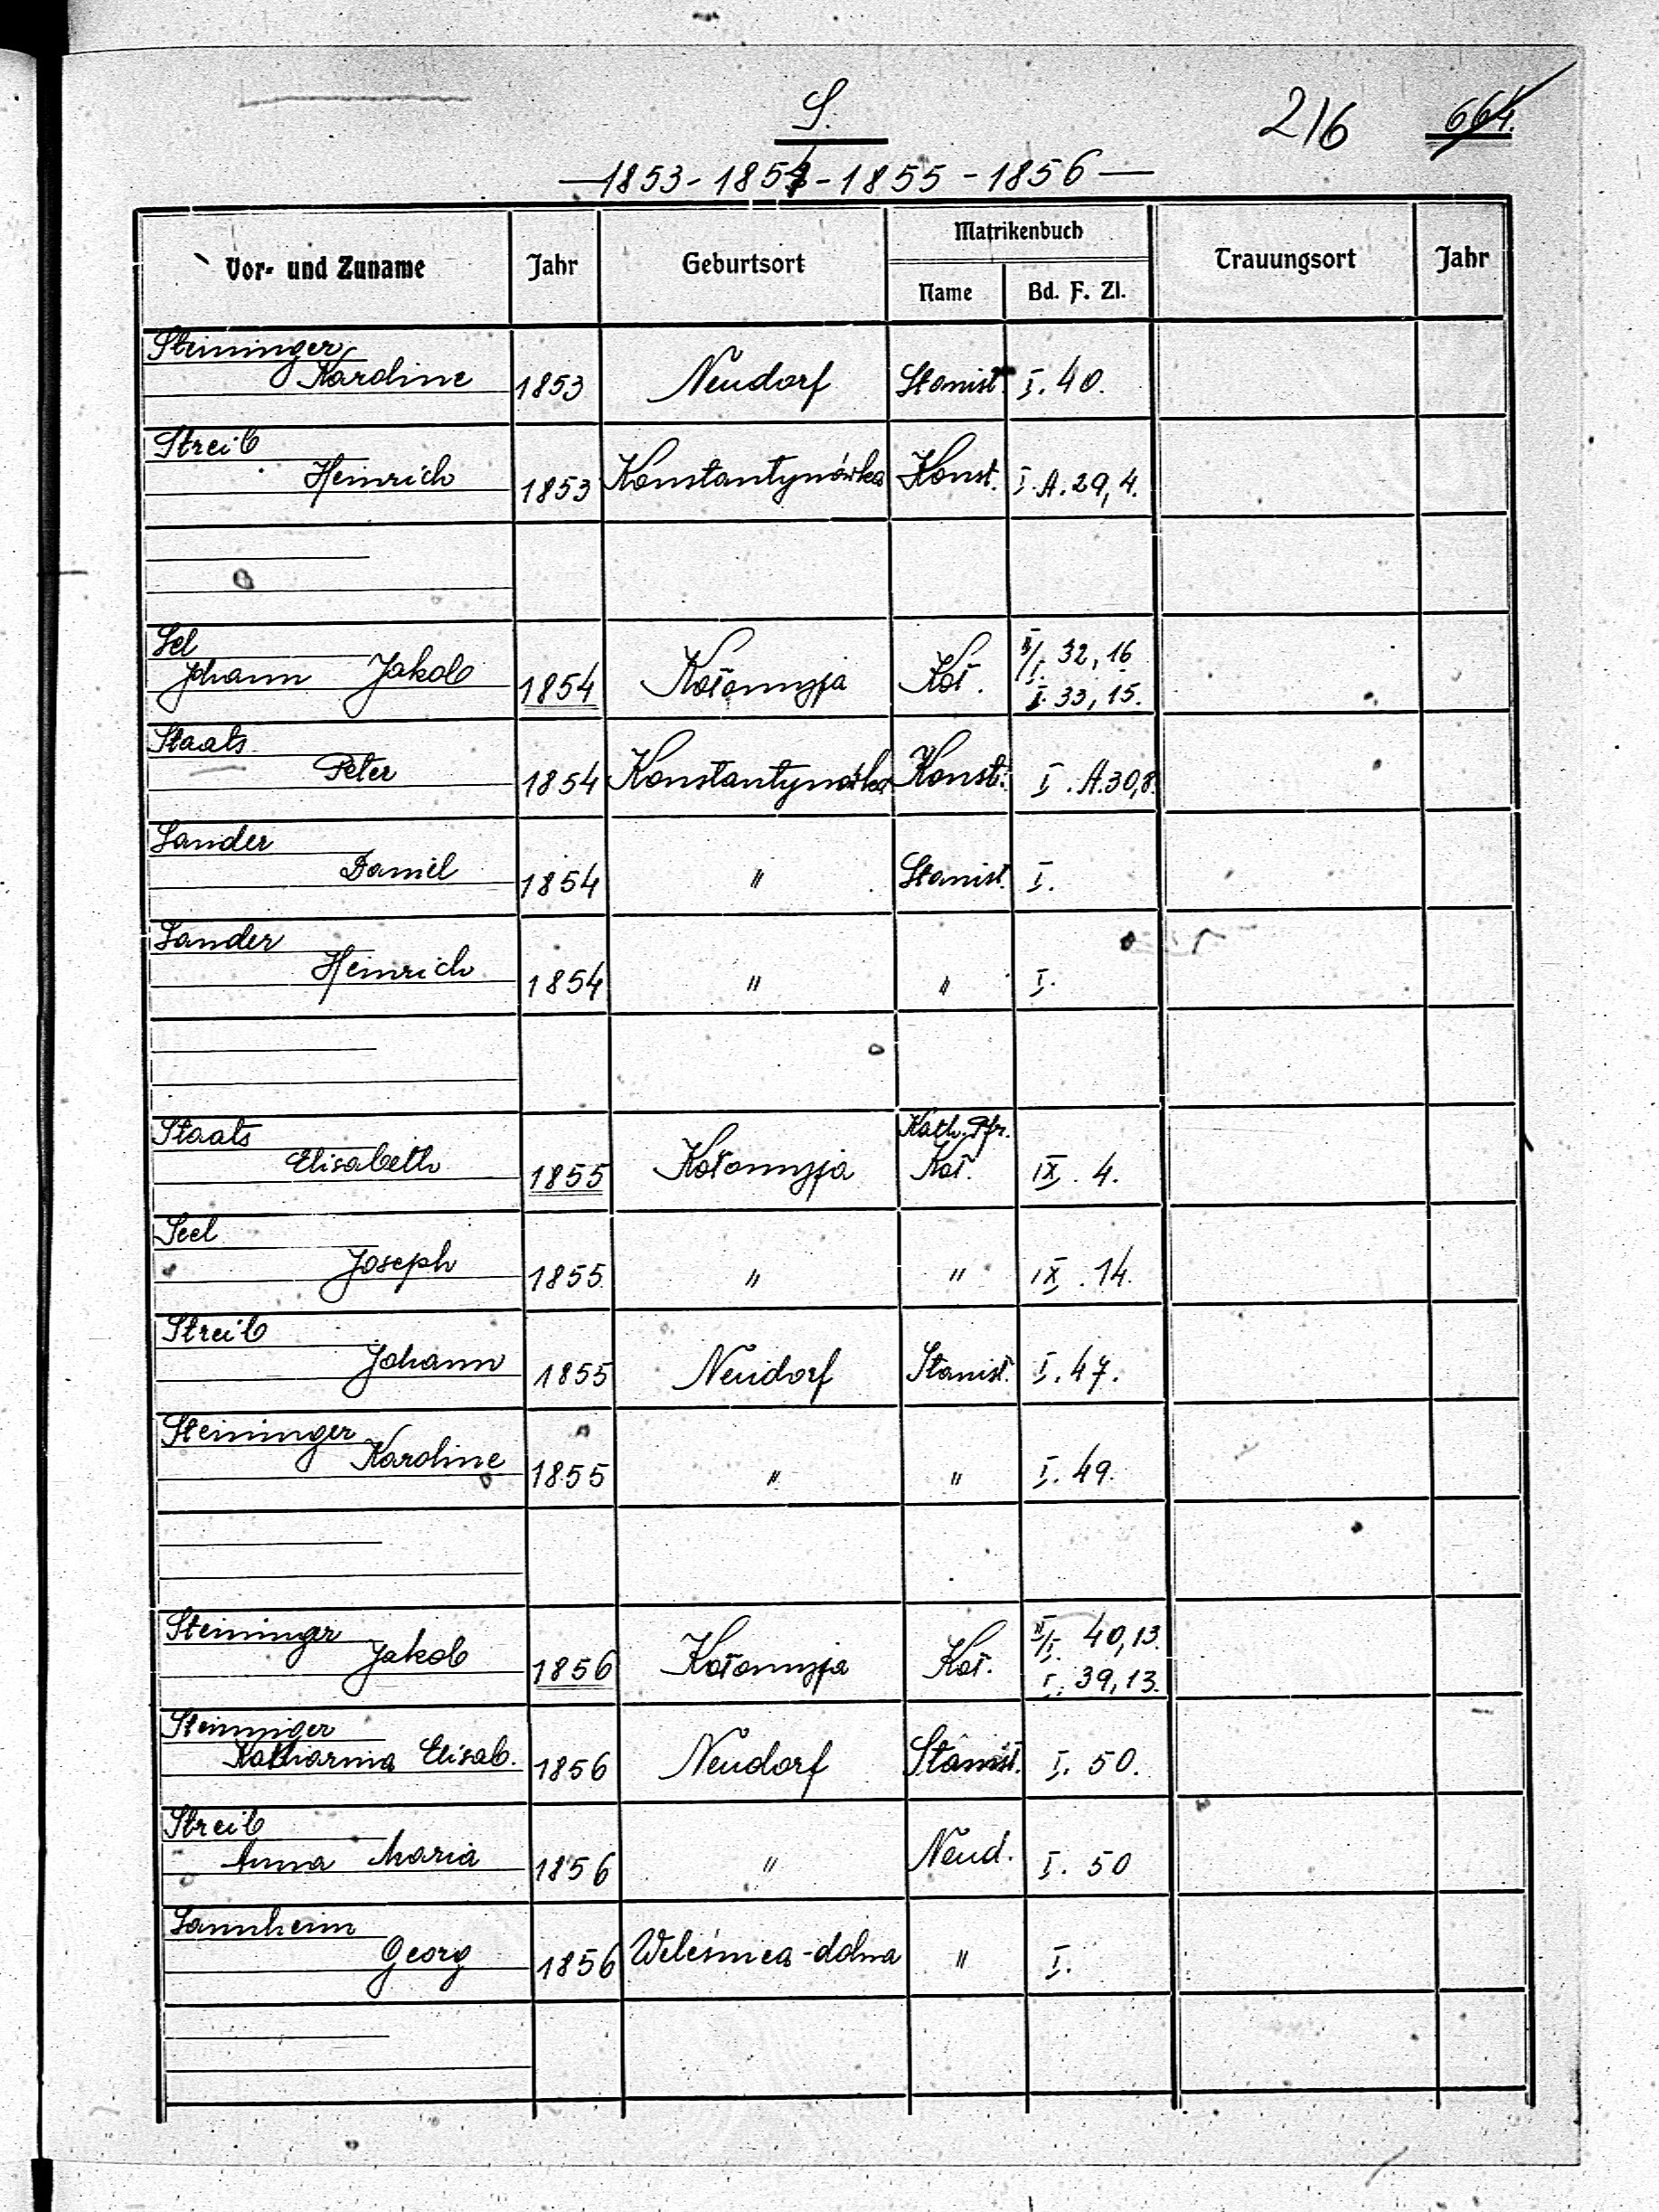 S.
216 664.
—1853-1854-1855-1856—
Vor- und Zuname Jahr Geburtsort Matrikenbuch Trauungsort Jahr
Name Bd. F. Zl.
Steininger
Karoline 1853 Neudorf Stanisł. I. 40.
Streib
Heinrich 1853 Konstantynówka Konst. I. A. 29, 4.
Sel II/I. 32, 16
Johann Jakob 1854 Kołomyja Koł. I. 33, 15.
Staats
Peter 1854 Konstantynówka Konst. I. A. 30, 8.
Sander
Daniel 1854 " Stanisł. I.
Sander
Heinrich 1854 " " I.
Staats Kath. Pfr.
Elisabeth 1855 Kołomyja Koł. IX. 4.
Seel
Joseph 1855 " " IX. 14.
Streib
Johann 1855 Neudorf Stanisł. I. 47.
Steininger
Karoline 1855 " " I. 49.
Steininger II/I. 40, 13.
Jakob 1856 Kołomyja Koł. I. 39, 13.
Steininger
Katharina Elisab. 1856 Neudorf Stanisł. I. 50.
Streib
Anna Maria 1856 " Neud. I. 50
Sannheim
Georg 1856 Weleśnica-dolna " I.